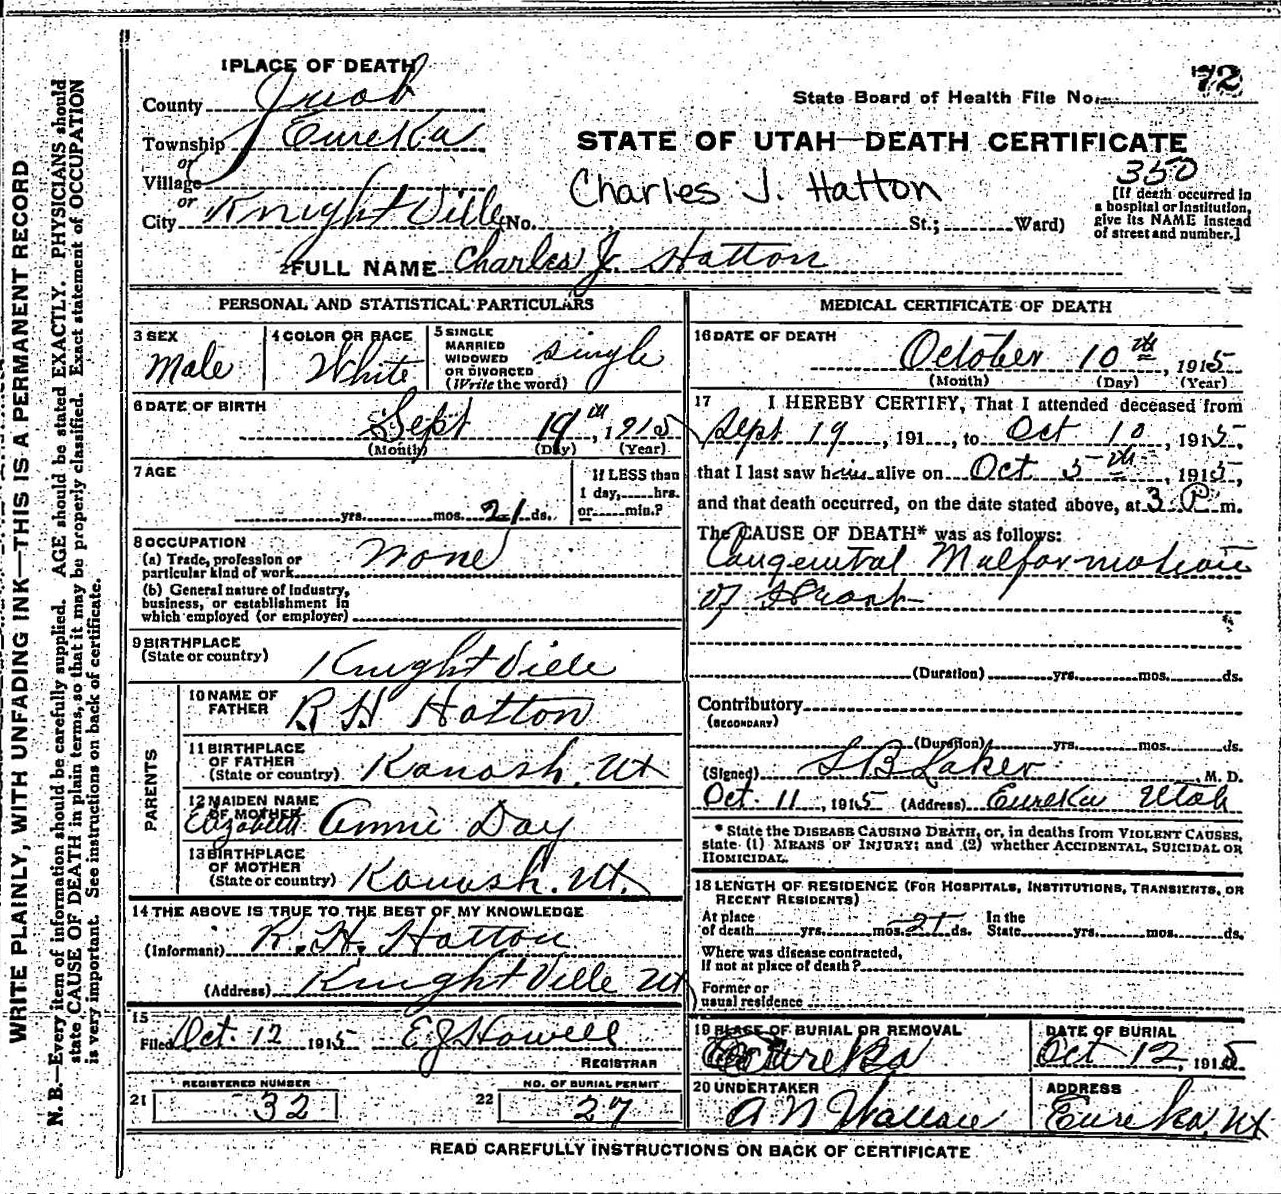 WRITE PLAINLY, WITH UNFADING INK—THIS IS A PERMANENT RECORD
N. B.—Every item of information should be carefully supplied. AGE should be stated EXACTLY. PHYSICIANS should
state CAUSE OF DEATH in plain terms, so that it may be properly classified. Exact statement of OCCUPATION
is very important. See instructions on back of certificate.
1 PLACE OF DEATH
72
County Juab
State Board of Health File No.
Township Eureka
STATE OF UTAH—DEATH CERTIFICATE
or
Village
350
Charles J. Hatton
or
City KnightVille (No. St.; Ward)
[If death occurred in
a hospital or institution,
give its NAME instead
of street and number.]
2 FULL NAME Charles J. Hatton
PERSONAL AND STATISTICAL PARTICULARS
3 SEX
Male
4 COLOR OR RACE
White
5 SINGLE
MARRIED
WIDOWED
OR DIVORCED
(Write the word)
single
6 DATE OF BIRTH
Sept 19th, 1915
(Month) (Day) (Year)
7 AGE
yrs. mos. 21 ds.
If LESS than
1 day, hrs.
or min.?
8 OCCUPATION
(a) Trade, profession or
particular kind of work None
(b) General nature of industry,
business, or establishment in
which employed (or employer)
9 BIRTHPLACE
(State or country) KnightVille
PARENTS
10 NAME OF
FATHER R H Hatton
11 BIRTHPLACE
OF FATHER
(State or country) Kanosh, Ut
12 MAIDEN NAME
OF MOTHER
Elizabeth Annie Day
13 BIRTHPLACE
OF MOTHER
(State or country) Kanosh. Ut.
14 THE ABOVE IS TRUE TO THE BEST OF MY KNOWLEDGE
(Informant) R. H. Hatton
(Address) KnightVille Ut
15
Filed Oct. 12 1915 E J Howell
REGISTRAR
21 REGISTERED NUMBER
32
22 NO. OF BURIAL PERMIT
27
MEDICAL CERTIFICATE OF DEATH
16 DATE OF DEATH
October 10th, 1915
(Month) (Day) (Year)
17 I HEREBY CERTIFY, That I attended deceased from
Sept 19, 191, to Oct 10, 1915,
that I last saw him alive on Oct 5th, 1915,
and that death occurred, on the date stated above, at 3 P m.
The CAUSE OF DEATH* was as follows:
Congenital Malformation
of Heart
(Duration) yrs. mos. ds.
Contributory
(SECONDARY)
(Duration) yrs. mos. ds.
(Signed) S B Laker, M. D.
Oct. 11, 1915 (Address) Eureka Utah
* State the DISEASE CAUSING DEATH, or, in deaths from VIOLENT CAUSES,
state (1) MEANS OF INJURY; and (2) whether ACCIDENTAL, SUICIDAL OR
HOMICIDAL.
18 LENGTH OF RESIDENCE (FOR HOSPITALS, INSTITUTIONS, TRANSIENTS, OR
RECENT RESIDENTS)
At place
of death yrs. mos. 21 ds.
In the
State yrs. mos. ds.
Where was disease contracted,
if not at place of death?
Former or
usual residence
19 PLACE OF BURIAL OR REMOVAL
Eureka
DATE OF BURIAL
Oct 12, 1915
20 UNDERTAKER
A N Wallace
ADDRESS
Eureka, Ut
READ CAREFULLY INSTRUCTIONS ON BACK OF CERTIFICATE